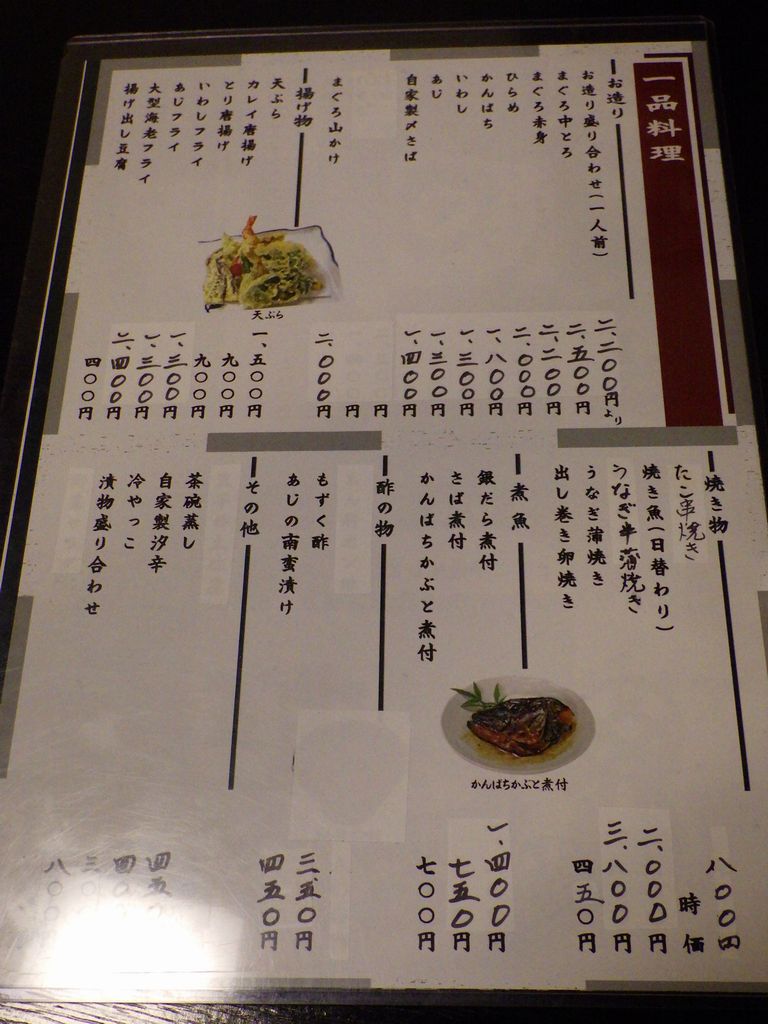 一品料理
お造り
お造り盛り合わせ(一人前) 二、二〇〇円より
まぐろ中とろ 二、五〇〇円
まぐろ赤身 二、二〇〇円
ひらめ 二、〇〇〇円
かんぱち 一、八〇〇円
いわし 一、三〇〇円
あじ 一、三〇〇円
自家製〆さば 一、四〇〇円
円
円
まぐろ山かけ 二、〇〇〇円
揚げ物
天ぷら 一、五〇〇円
カレイ唐揚げ 九〇〇円
とり唐揚げ 九〇〇円
いわしフライ 一、三〇〇円
あじフライ 一、三〇〇円
大型海老フライ 二、四〇〇円
揚げ出し豆腐 四〇〇円
天ぷら
焼き物
たこ串焼き 八〇〇円
焼き魚(日替わり) 時価
うなぎ半蒲焼き 二、〇〇〇円
うなぎ蒲焼き 三、八〇〇円
出し巻き卵焼き 四五〇円
煮魚
銀だら煮付 一、四〇〇円
さば煮付 七五〇円
かんぱちかぶと煮付 七〇〇円
かんぱちかぶと煮付
酢の物
もずく酢 三五〇円
あじの南蛮漬け 四五〇円
その他
茶碗蒸し
自家製汐辛
冷やっこ
漬物盛り合わせ